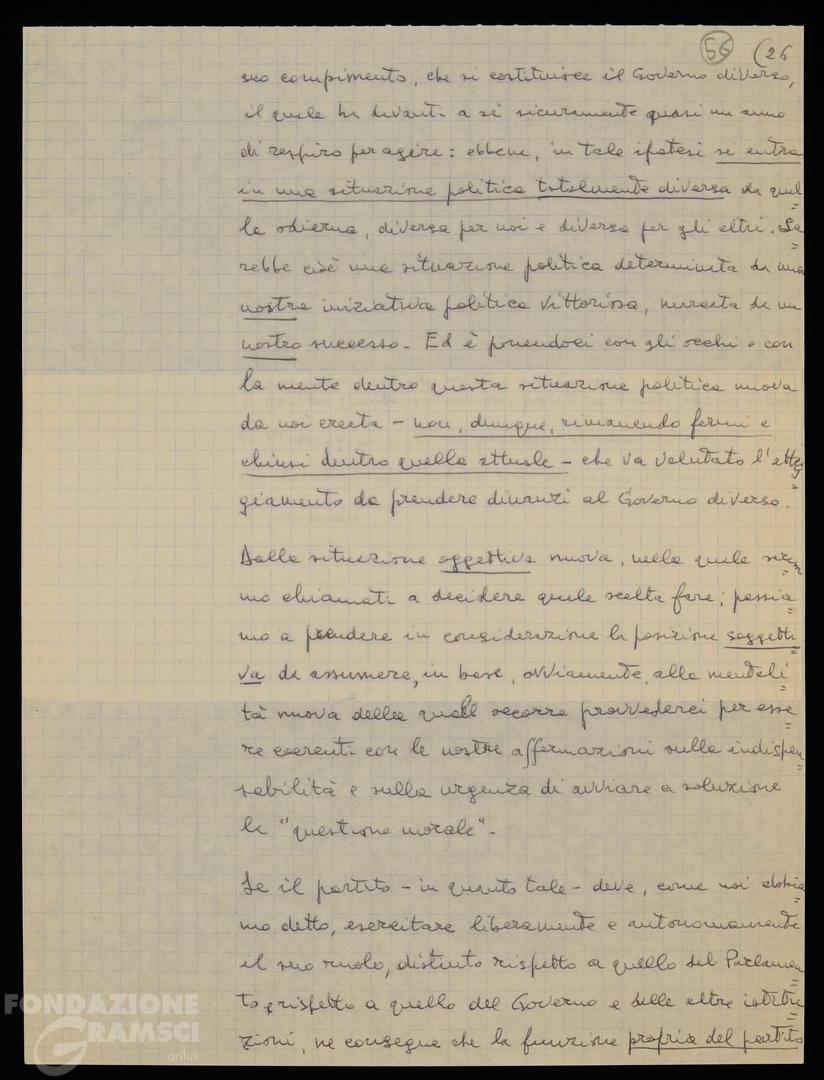 56 (26
suo compimento, che si costituisce il Governo diverso,
il quale ha davanti a sé sicuramente quasi un anno
di respiro per agire: ebbene, in tale ipotesi si entra
in una situazione politica totalmente diversa da quel=
la odierna, diversa per noi e diversa per gli altri. Sa=
rebbe cioè una situazione politica determinata da una
nostra iniziativa politica vittoriosa, da un
nostro successo. Ed è ponendoci con gli occhi e con
la mente dentro questa situazione politica nuova
da noi creata – non, dunque, rimanendo fermi e
chiusi dentro quella attuale – che va valutato l'atteg=
giamento da prendere dinanzi al Governo diverso.
Dalla situazione oggettiva nuova, nella quale sarem=
mo chiamati a decidere quale scelta fare, passia=
mo a prendere in considerazione la posizione soggetti=
va da assumere, in base, ovviamente, alla mentali=
tà nuova della quale occorre provvederci per esse=
re coerenti con le nostre affermazioni sulla indispen=
sabilità e sulla urgenza di avviare a soluzione
la "questione morale".
Se il partito – in quanto tale – deve, come noi abbia=
mo detto, esercitare liberamente e autonomamente
il suo ruolo, distinto rispetto a quello del Parlamen=
to e rispetto a quello del Governo e delle altre istitu=
zioni, ne consegue che la funzione propria del partito
FONDAZIONE
GRAMSCI
onlus